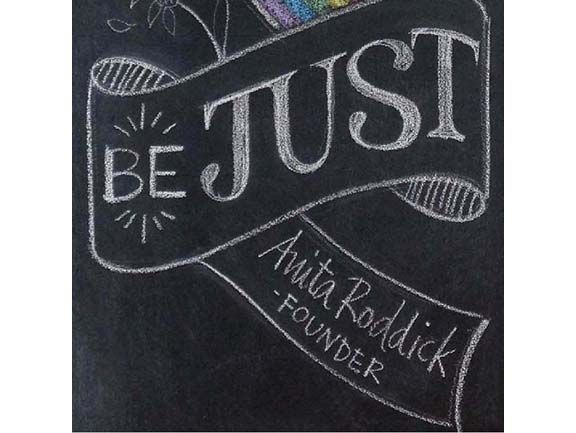 BE JUST
Anita Roddick
-FOUNDER